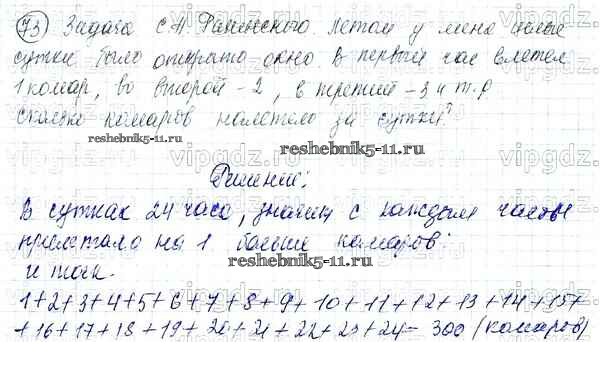 73 Задача С.А. Рачинского. Летом у меня целые
сутки было открыто окно. В первый час влетел
1 комар, во второй - 2, в третий - 3 и т.д
Сколько комаров налетело за сутки?
reshebnik5-11.ru
reshebnik5-11.ru
Решение:
В сутках 24 часа, значит с каждым часом
прилетало на 1 больше комаров.
reshebnik5-11.ru
и так.
1+2+3+4+5+6+7+8+9+10+11+12+13+14+15+
+16+17+18+19+20+21+22+23+24= 300 (комаров)
vipgdz.ru